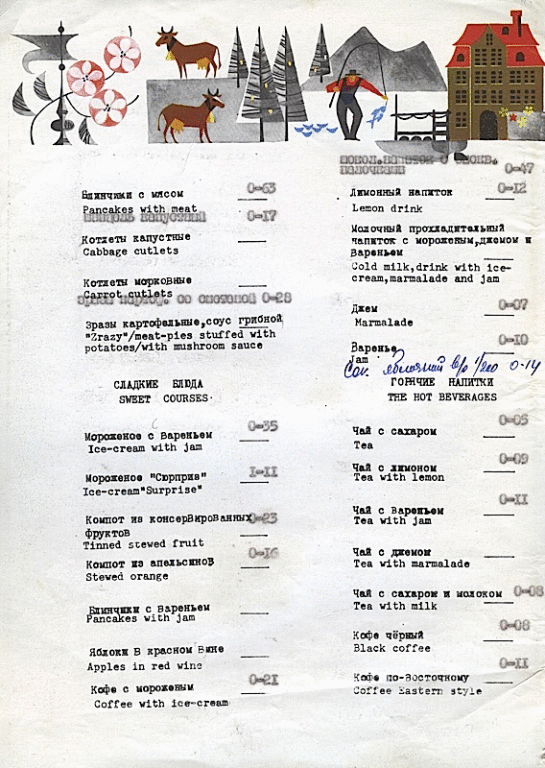 0-63
Блинчики с мясом
Pancakes with meat
капустный 0-17
Котлеты капустные
Cabbage cutlets
Котлеты морковные
Carrot cutlets
со сметаной 0-28
Зразы картофельные,соус грибной
"Zrazy"/meat-pies stuffed with
potatoes/with mushroom sauce
СЛАДКИЕ БЛЮДА
SWEET COURSES
0-35
Мороженое с вареньем
Ice-cream with jam
1-11
Мороженое "Сюрприз"
Ice-cream"Surprise"
Компот из консервированных 0-23
фруктов
Tinned stewed fruit
0-16
Компот из апельсинов
Stewed orange
Блинчики с вареньем
Pancakes with jam
Яблоки в красном вине
Apples in red wine
0-21
Кофе с мороженым
Coffee with ice-cream
0-47
0-12
Лимонный напиток
Lemon drink
Молочный прохладительный
напиток с мороженым,джемом и
вареньем
Cold milk,drink with ice-
cream,marmalade and jam
0-07
Джем
Marmalade
0-10
Варенье
Jam
Сок яблочный 0-14
ГОРЯЧИЕ НАПИТКИ
THE HOT BEVERAGES
0-05
Чай с сахаром
Tea
0-09
Чай с лимоном
Tea with lemon
0-11
Чай с вареньем
Tea with jam
Чай с джемом
Tea with marmalade
Чай с сахаром и молоком 0-08
Tea with milk
0-08
Кофе чёрный
Black coffee
0-11
Кофе по-восточному
Coffee Eastern style